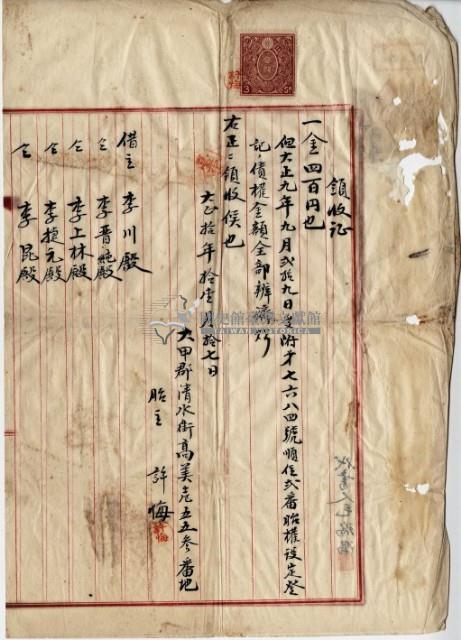 領收证
一金四百円也
但大正九年九月弍拾九日受附第七六八四號順位弍番胎權設定登
記ノ債權金額全部辨済ノ
右正ニ領收候也
大正拾年拾壹月拾七日
大甲郡清水街高美五五參番地
胎主 許悔
借主 李川殿
仝 李晋純殿
仝 李上林殿
仝 李捷元殿
仝 李昆殿
國史館臺灣文獻館
TAIWAN HISTORICA
3 Sn